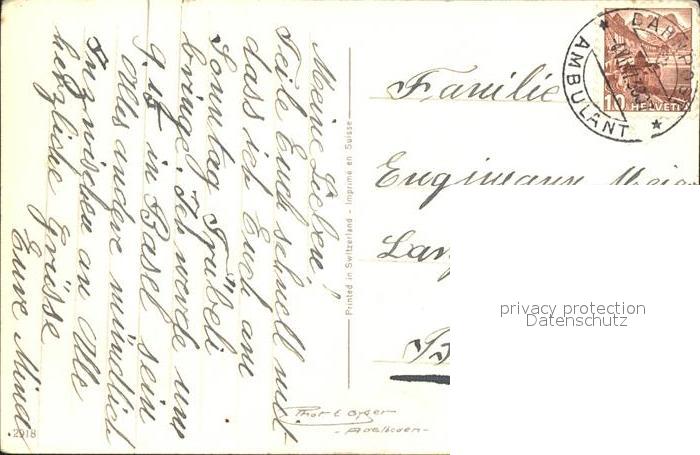 Meine Lieben,
Teile Euch schnell mit
dass ich Euch am
Sonntag Trübeli
bringe. Ich werde um
9.15 in Basel sein
Alles andere mündlich
Inzwischen an Alle
herzliche Grüsse
Eure Mind
Printed in Switzerland - Imprimé en Suisse
Familie
Engimann
AMBULANT
10 HELVETIA
privacy protection
Datenschutz
Phot E Gyger
- Adelboden -
2918